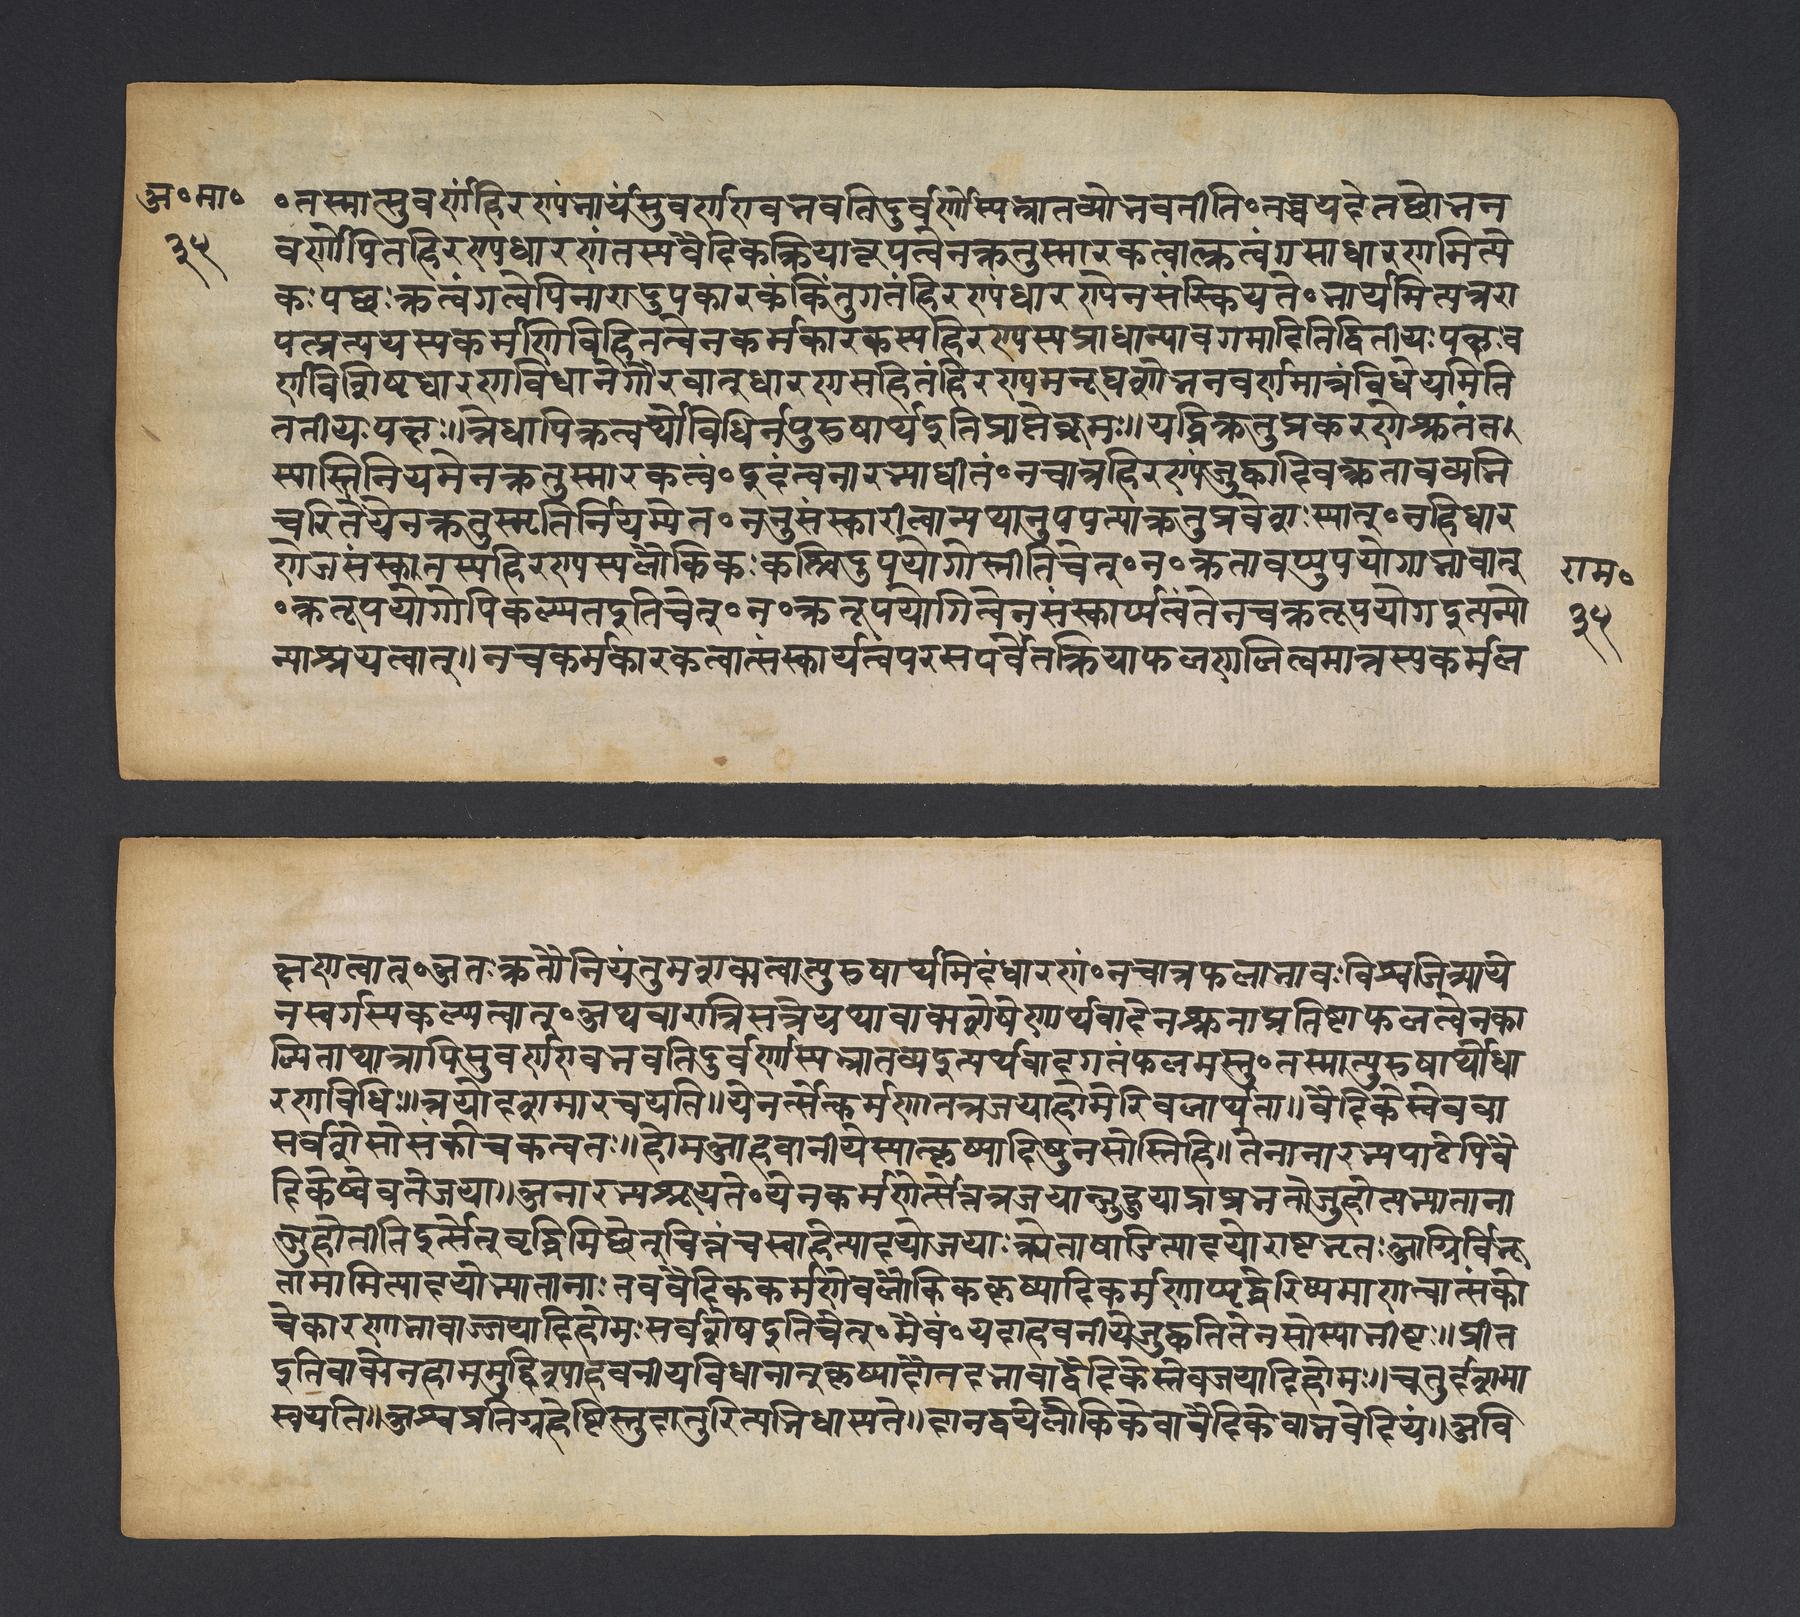 अ॰मा॰
३५
॰तस्मात्सुवर्णंहिरण्यंभार्यंसुवर्णएवभवतिदुर्वर्णोस्यभ्रातृव्योभवतीति॰
वर्णोपितहिरण्यधारणंतस्यवैदिकक्रियारूपत्वेनक्रतुस्मारकत्वात्क्रत्वंगसाधारणमित्ये
कःपक्षःक्रत्वंगत्वेपिनारादुपकारकंकिंतुगतंहिरण्यंधारणेनसंस्क्रियते॰भार्यमित्यत्रण्य
पत्प्रत्ययस्यकर्मणिविहितत्वेनकर्मकारकस्यहिरण्यस्यप्राधान्यावगमादितिद्वितीयःपक्षःव
र्णविशिष्टधारणविधानेगौरवात्धारणसहितंहिरण्यमनूद्यशोभनवर्णमात्रंविधेयमिति
तृतीयःपक्षः॥त्रेधापिक्रत्वर्थोविधिर्नपुरुषार्थइतिप्राप्तेब्रूमः॥यद्धिक्रतुप्रकरणेश्रुतंत
स्यास्तिनियमेनक्रतुस्मारकत्वं॰इदंत्वनारभ्याधीतं॰नचात्रहिरण्यंजुह्वादिवत्क्रताव
व्यभिचरितंयेनक्रतुस्मृतिर्नियम्येत॰ननुसंस्कारविधित्वान्यथानुपपत्त्याक्रतुप्रवेशःस्यात्॰नहिधार
णेनसंस्कृतस्यहिरण्यस्यलौकिकःकश्चिदुपयोगोस्तीतिचेत्॰न॰क्रतावप्युपयोगाभावात्
॰क्रतूपयोगोपिकल्प्यतइतिचेत्॰न॰क्रतूपयोगित्वेनसंस्कार्यत्वंतेनचक्रतूपयोगइत्यन्यो
न्याश्रयत्वात्॥नचकर्मकारकत्वात्संस्कार्यत्वंपरसमवेतक्रियाफलशालित्वमात्रस्यकर्मल
राम॰
३५
क्षणत्वात्॰अतःक्रतौनियंतुमशक्यत्वात्पुरुषार्थमिदंधारणं॰नचात्रफलाभावःविश्वजिन्न्याये
नस्वर्गस्यकल्प्यत्वात्॰अथवारात्रिसत्रेयथावाक्यशेषेणार्थवादेनश्रुताप्रतिष्ठाफलत्वेनक
ल्पितातथात्रापिसुवर्णएवभवतिदुर्वर्णोस्यभ्रातृव्यइत्यर्थवादगतंफलमस्तु॰तस्मात्पुरुषार्थोधा
रणविधिः॥त्रयोदशमारचयति॥येनेर्त्सेत्कर्मणातत्रजयाहोमेरिवलार्थता॥वैदिकेस्वेववा
सर्वशेषोसंकोचकत्वतः॥होमआहवनीयेस्यात्कृष्यादिषुनसोस्तिहि॥तेनानारभ्यपाठेपिवै
दिकेष्वेवतेजया॥अनारभ्यश्रूयते॰येनकर्मणेर्त्सेत्तत्रजयान्जुहुयाद्राष्ट्रभृतोजुहोत्यभ्याताना
न्जुहोतीतिइर्त्सेत्ऋद्धिमिच्छेत्चित्तंचस्वाहेत्यादयोजयाःऋताषाडित्यादयोराष्ट्रभृतःअग्निर्भू
तानामित्यादयोभ्यातानाःतत्रवैदिककर्मणेवलौकिककृष्यादिकर्मणाप्यृद्धेरिष्यमाणत्वात्संको
चेकारणाभावाज्जयादिहोमःसर्वशेषइतिचेत्॰मैवं॰यदाहवनीयेजुह्वतितेनसोस्याभीष्टःप्रीत
इतिवाक्येनहोममुद्दिश्याहवनीयविधानात्कृष्यादौतदभावाद्वैदिकेस्वेवजयादिहोमः॥चतुर्दशमा
रचयति॥अश्वप्रतिग्रहेष्टिस्तुदातुरित्यभिधास्यते॥दानद्वयेलौकिकेवावैदिकेवाभवेदियं॥अवि